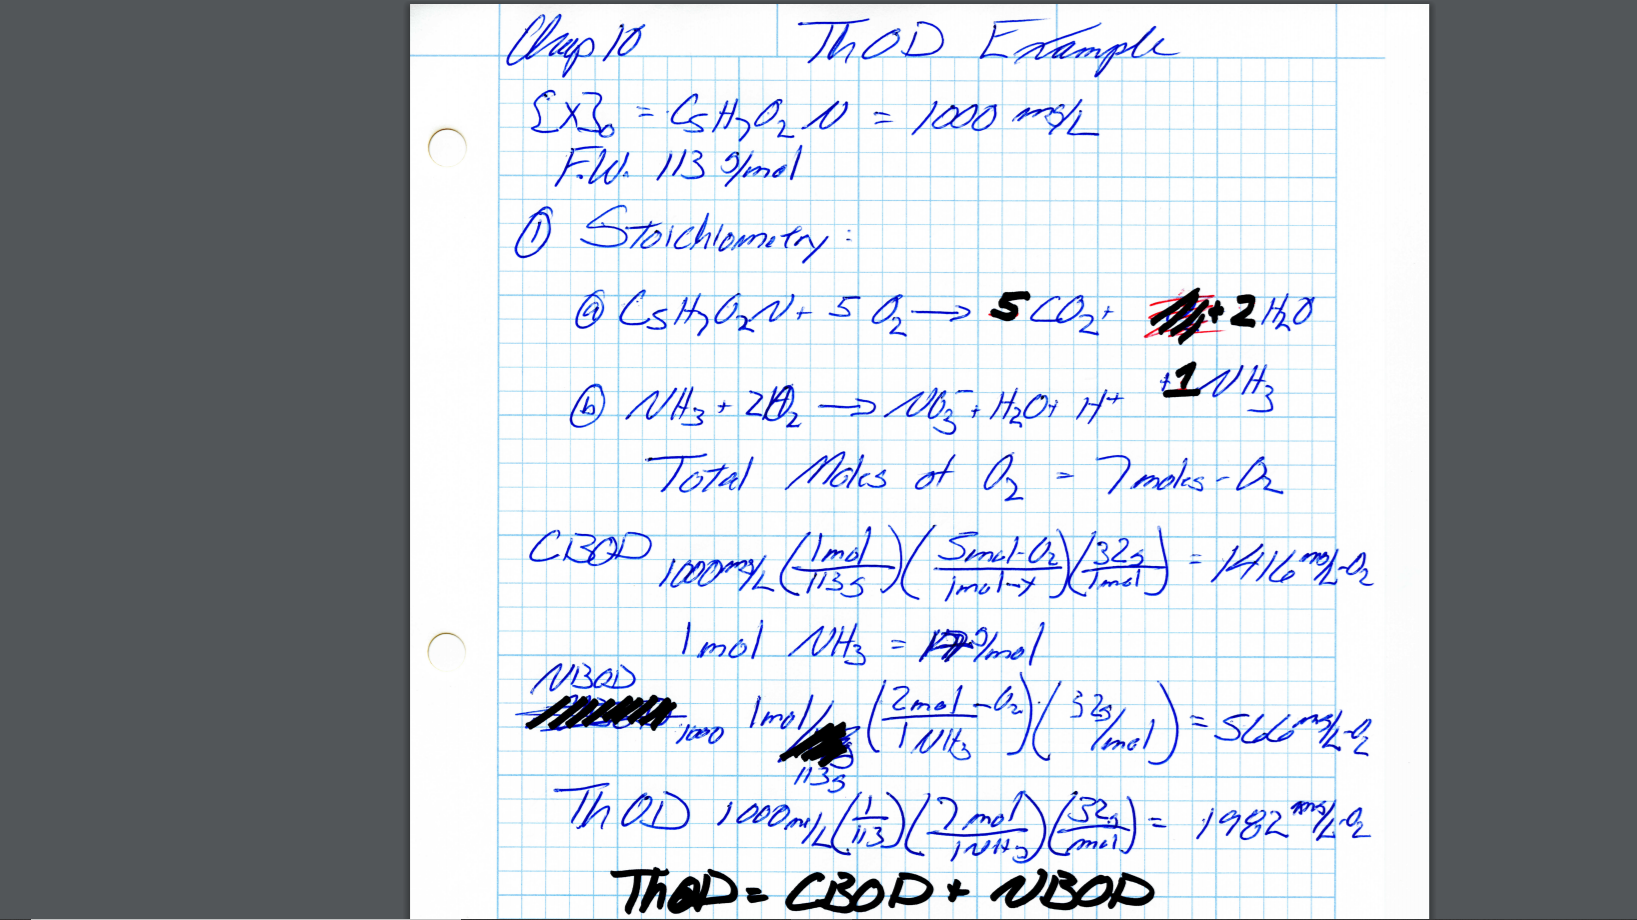 Chap 10 ThOD Example
{X}₀ = C₅H₇O₂N = 1000 mg/L
F.W. 113 g/mol
① Stoichiometry:
ⓐ C₅H₇O₂N + 5 O₂ → 5 CO₂ + + 2 H₂O
+ 1 NH₃
ⓑ NH₃ + 2O₂ → NO₃⁻ + H₂O + H⁺
Total Moles of O₂ = 7 moles - O₂
CBOD 1000 mg/L (1mol/113g) (5mol-O₂/1mol-x) (32g/1mol) = 1416 mg/L-O₂
1 mol NH₃ = 17 g/mol
NBOD
1000 1mol/113g (2mol-O₂/1NH₃) (32g/mol) = 566 mg/L-O₂
ThOD 1000 mg/L (1/113) (7 mol/1NH₃) (32g/mol) = 1982 mg/L-O₂
ThOD = CBOD + NBOD